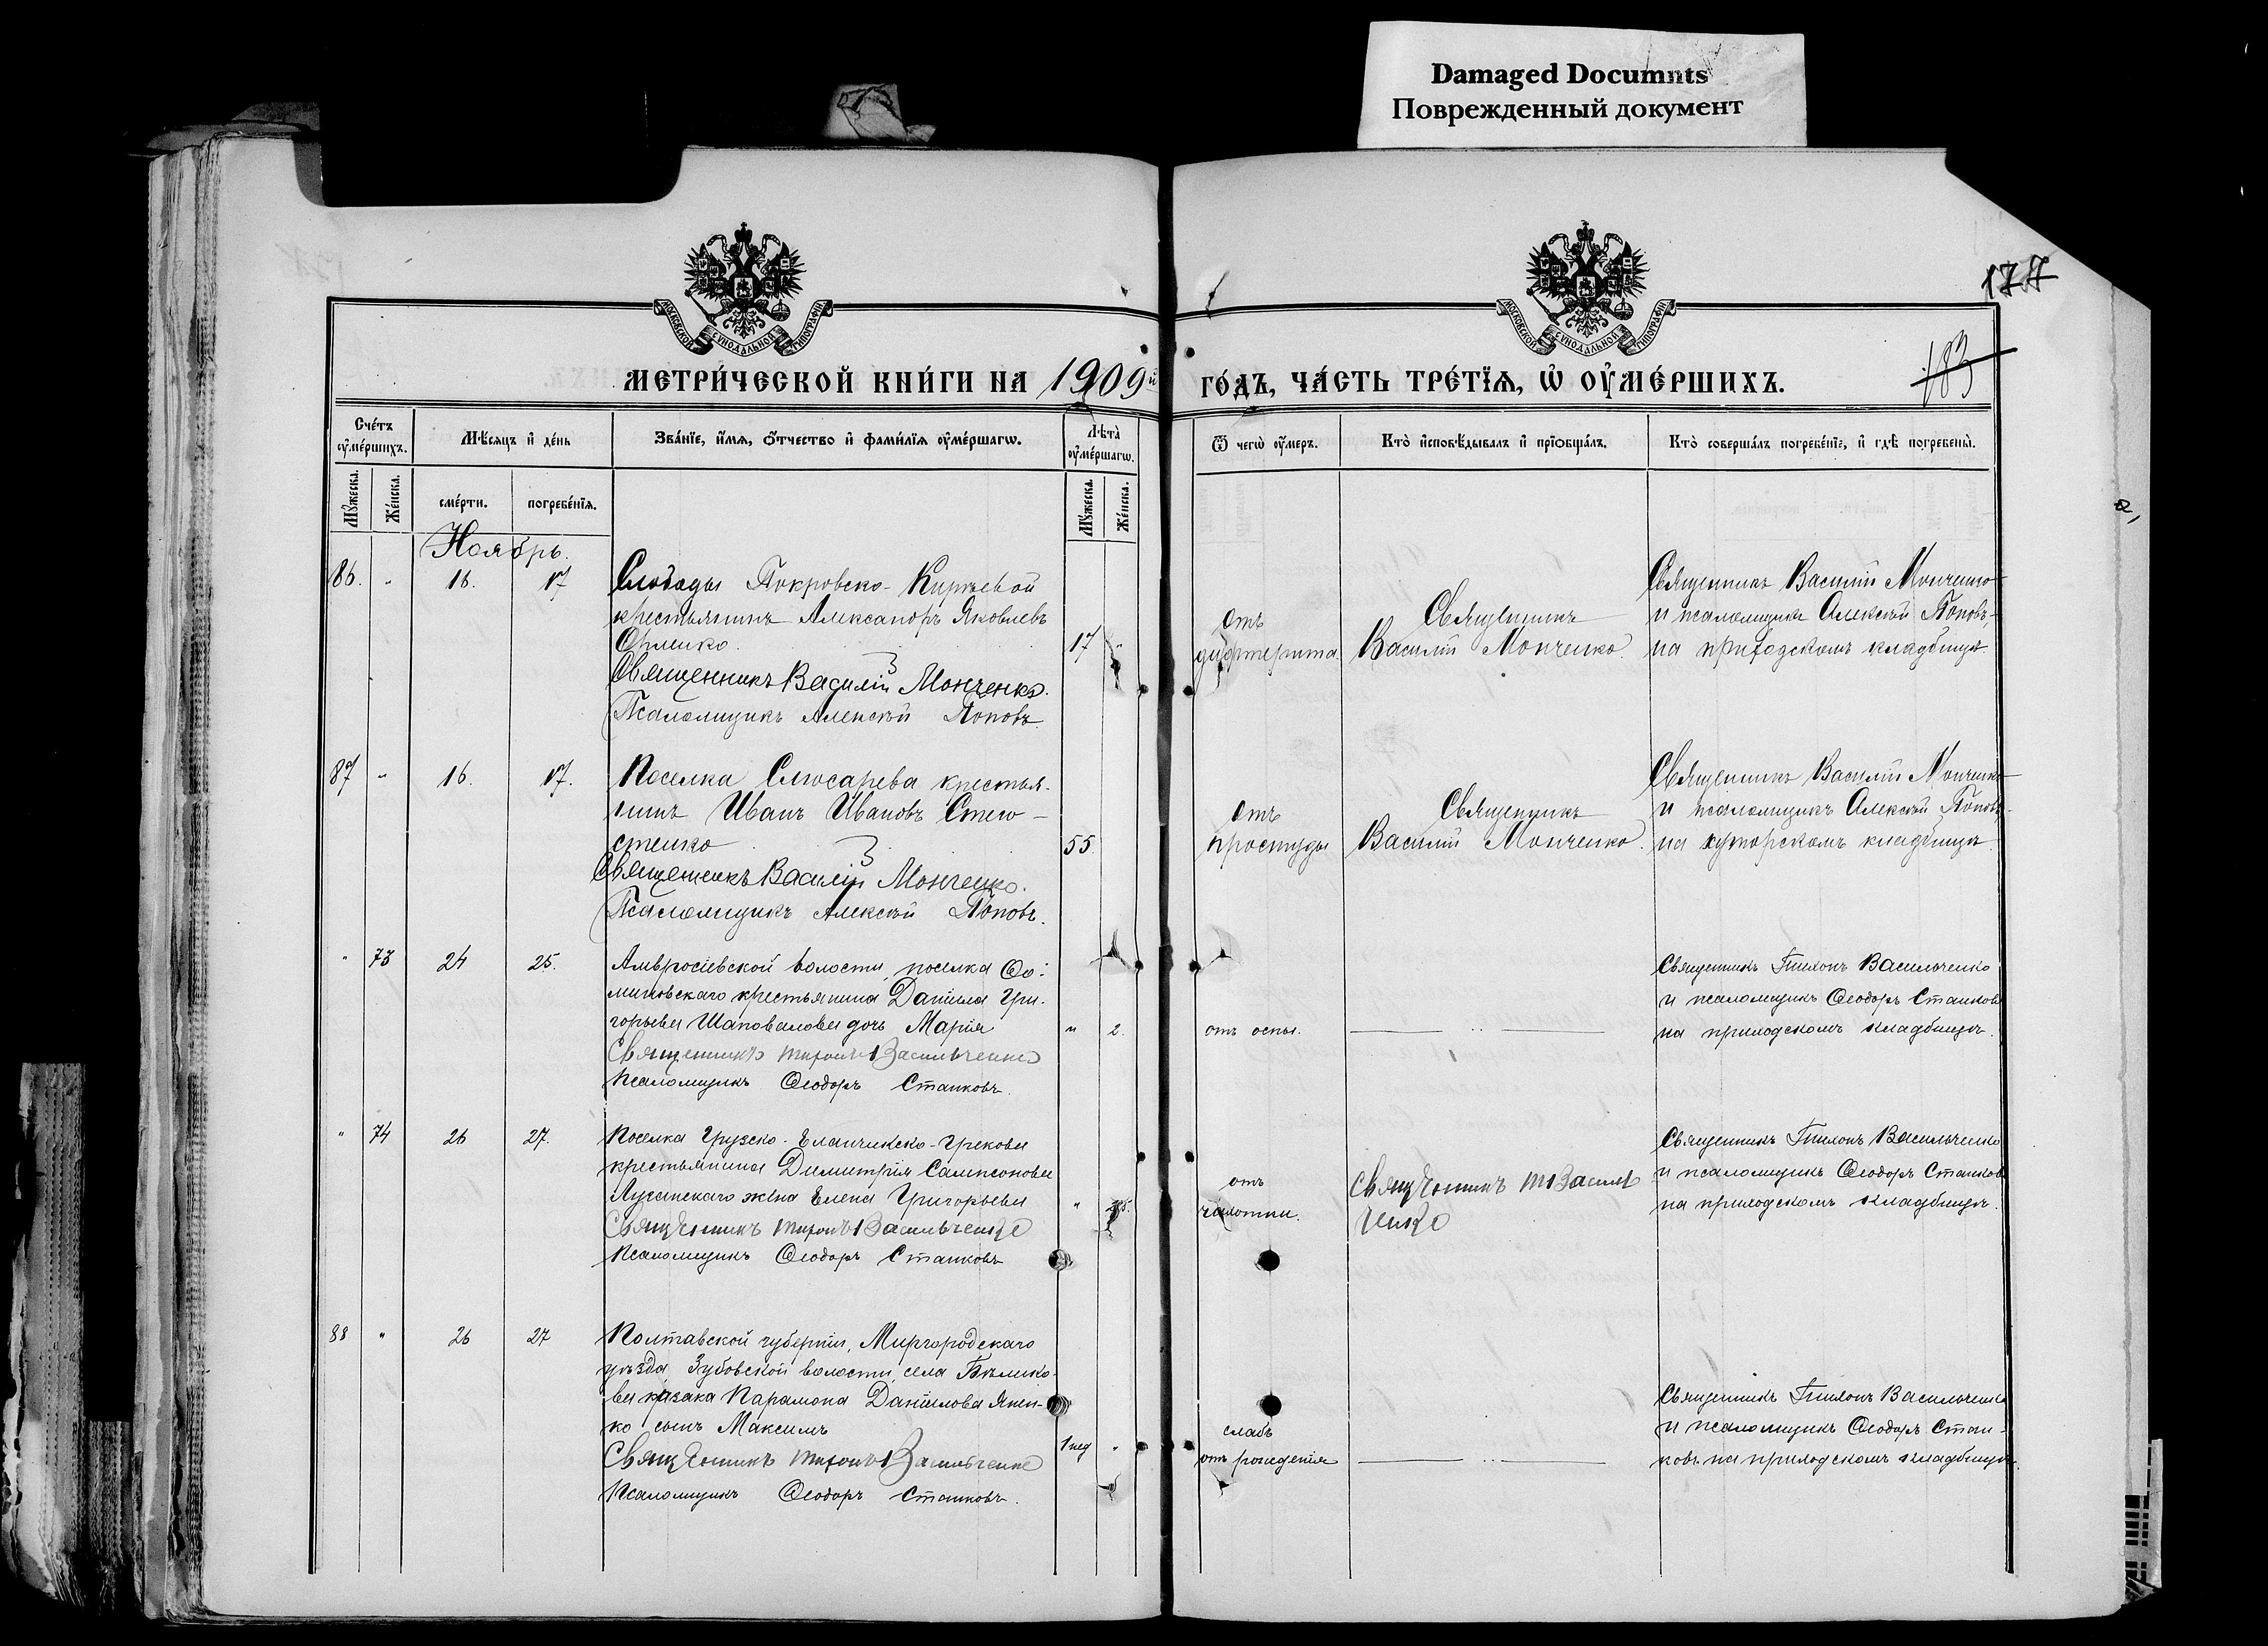 Damaged Documnts
Поврежденный документ
177
183
МОСКОВСКОЙ СѴНОДАЛЬНОЙ ТИПОГРАФІИ
МОСКОВСКОЙ СѴНОДАЛЬНОЙ ТИПОГРАФІИ
МЕТРИ́ЧЕСКОЙ КНИ́ГИ НА 1909й ГО́ДЪ, ЧА́СТЬ ТРЕ́ТІѦ, Ѡ҆ ОУ҆МЕ́РШИХЪ.
Сче́тъ оу҆ме́ршихъ.
Мѣ́сѧцъ и҆ де́нь
Зва́нїе, и҆́мѧ, ѻ҆́тчество и҆ фами́лїѧ оу҆ме́ршагѡ.
Лѣ́та̀ оу҆ме́ршагѡ.
Ѿ чегѡ̀ оу҆́меръ.
Кто̀ и҆сповѣ́дывалъ и҆ прїѡбща́лъ.
Кто̀ соверша́лъ погребе́нїе, и҆ гдѣ̀ погребены̀.
Мꙋ́жеска.
Же́нска.
сме́рти.
погребе́нїѧ.
Мꙋ́жеска.
Же́нска.
Ноябрь.
86. " 16. 17
Слободы Покровско-Киръевой
крестьянинъ Александръ Яковлевъ
17 "
Священникъ Василій Монченко.
Псаломщикъ Алексѣй Поповъ
отъ
дифтерита
Священникъ
Василій Монченко.
Священникъ Василій Монченко
и псаломщикъ Алексѣй Поповъ,
на приходскомъ кладбищѣ
87 " 16. 17.
Поселка Слюсарева крестья-
нинъ Иванъ Ивановъ Стею-
стенко
55
Священникъ Василій Монченко.
Псаломщикъ Алексѣй Поповъ.
отъ
простуды
Священникъ
Василій Монченко.
Священникъ Василій Монченко
и псаломщикъ Алексѣй Поповъ
на хуторскомъ кладбищѣ.
" 73 24 25.
Амвросіевской волости, поселка Ѳо-
миновскаго крестьянина Даніила Гри-
горьева Шаповалова дочь Марія
" 2.
Священникъ Тихонъ Васильченко
Псаломщикъ Ѳеодоръ Станковъ.
отъ оспы.
Священникъ Тихонъ Васильченко
и псаломщикъ Ѳеодоръ Станковъ
на приходскомъ кладбищѣ.
" 74 26 27.
Поселка Грузско-Еланчикско-Грекова
крестьянина Димитрія Сампсонова
Луганскаго жена Елена Григорьева
"
Священникъ Тихонъ Васильченко
Псаломщикъ Ѳеодоръ Станковъ
отъ
чахотки.
Священникъ Т Василь
ченко
Священникъ Тихонъ Васильченко
и псаломщикъ Ѳеодоръ Станковъ
на приходскомъ кладбищѣ.
88 " 26 27
Полтавской губерніи, Миргородскаго
уѣзда, Зубовской волости, села Бѣлико-
ва казака Парамона Даніилова Янен-
ко сынъ Максимъ
1 нед "
Священникъ Тихонъ Васильченко
Псаломщикъ Ѳеодоръ Станковъ.
слабъ
отъ рожденія
Священникъ Тихонъ Васильченко
и псаломщикъ Ѳеодоръ Стан-
ковъ на приходскомъ кладбищѣ.